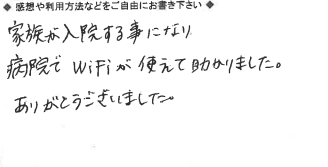 ◆ 感想や利用方法などをご自由にお書き下さい ◆
家族が入院する事になり
病院で WiFiが 使えて助かりました。
ありがとうございました。